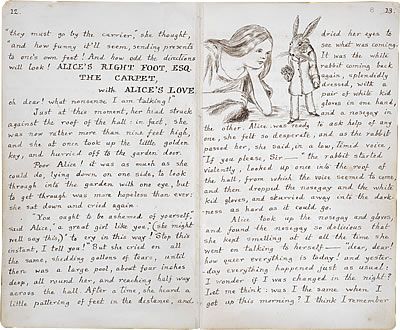 12.
"they must go by the carrier," she thought,
"and how funny it'll seem, sending presents
to one's own feet! And how odd the directions
will look! ALICE'S RIGHT FOOT, ESQ.
THE CARPET,
with ALICE'S LOVE
oh dear! what nonsense I am talking!"
Just at this moment, her head struck
against the roof of the hall: in fact, she
was now rather more than nine feet high,
and she at once took up the little golden
key, and hurried off to the garden door.
Poor Alice! it was as much as she
could do, lying down on one side, to look
through into the garden with one eye, but
to get through was more hopeless than ever:
she sat down and cried again.
"You ought to be ashamed of yourself,"
said Alice, "a great girl like you," (she might
well say this,) "to cry in this way! Stop this
instant, I tell you!" But she cried on all
the same, shedding gallons of tears, until
there was a large pool, about four inches
deep, all round her, and reaching half way
across the hall. After a time, she heard a
little pattering of feet in the distance, and
13.
dried her eyes to
see what was coming.
It was the white
rabbit coming back
again, splendidly
dressed, with a
pair of white kid
gloves in one hand,
and a nosegay in
the other. Alice was ready to ask help of any
one, she felt so desperate, and as the rabbit
passed her, she said, in a low, timid voice,
"If you please, Sir—" the rabbit started
violently, looked up once into the roof of
the hall, from which the voice seemed to come,
and then dropped the nosegay and the white
kid gloves, and skurried away into the dark-
ness as hard as it could go.
Alice took up the nosegay and gloves,
and found the nosegay so delicious that
she kept smelling at it all the time she
went on talking to herself— "dear, dear!
how queer everything is today! and yester-
-day everything happened just as usual:
I wonder if I was changed in the night?
Let me think: was I the same when I
got up this morning? I think I remember